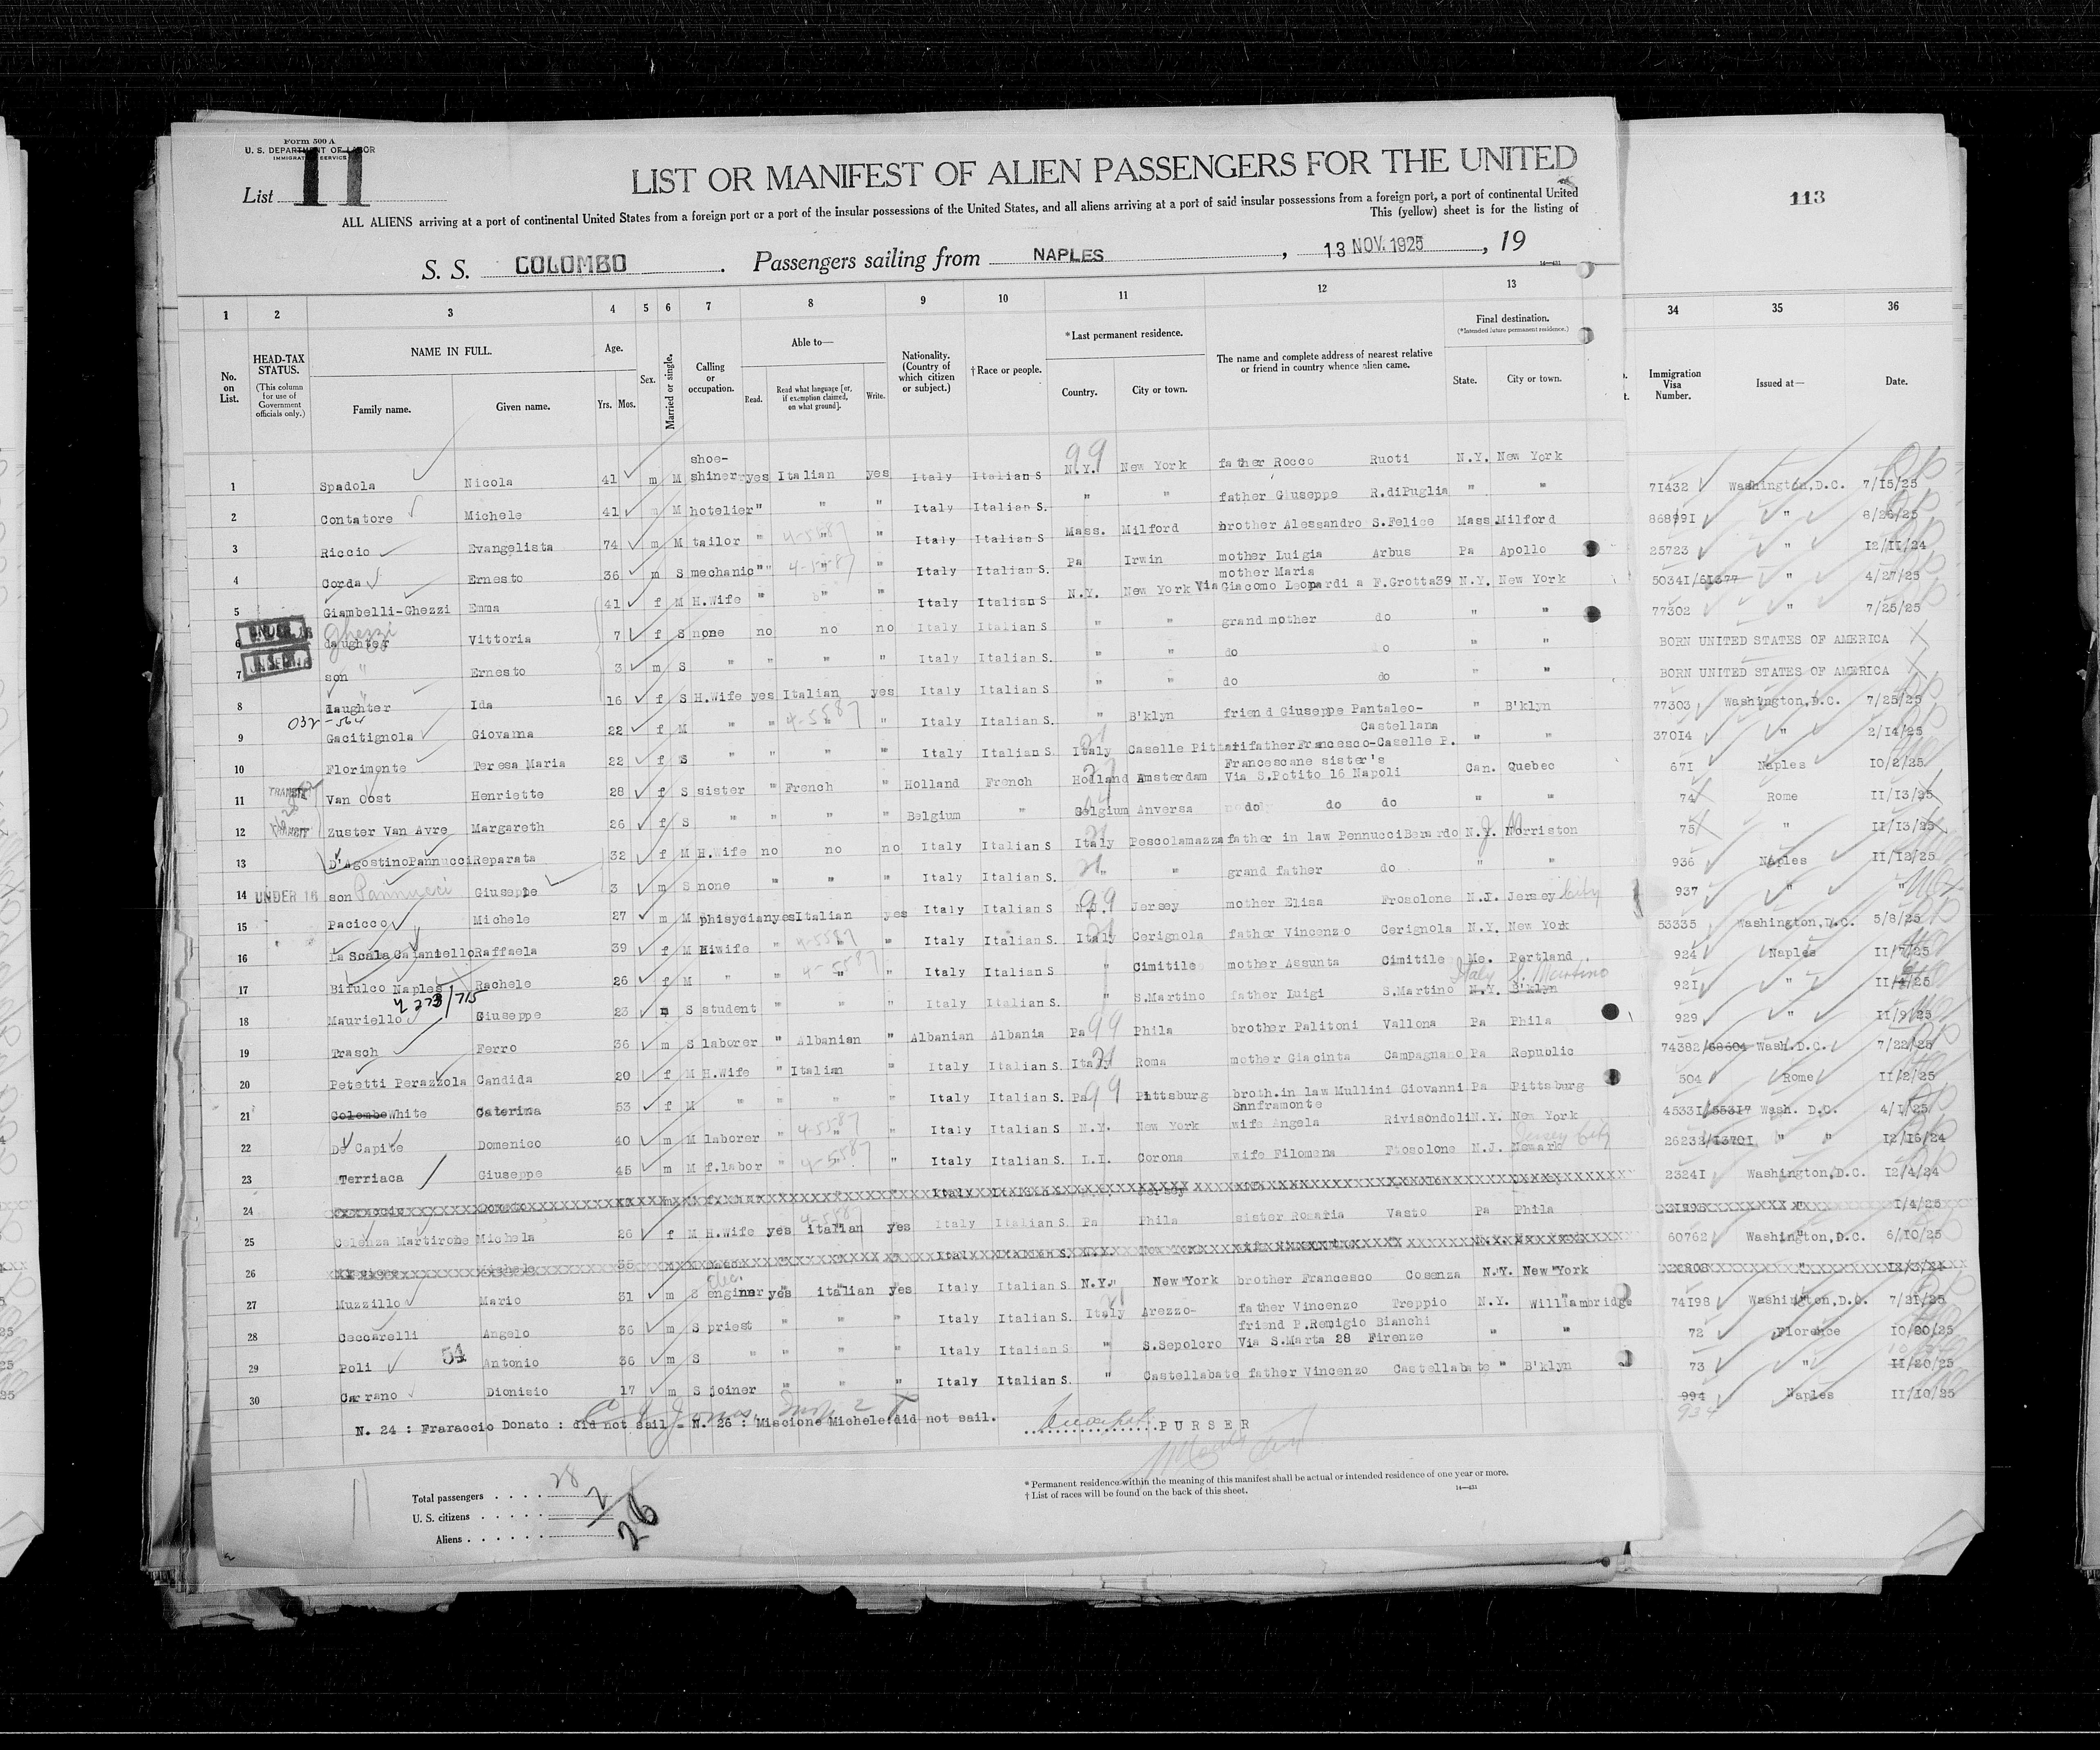 Form 500 A
U. S. DEPARTMENT OF LABOR
IMMIGRATION SERVICE
List 11
LIST OR MANIFEST OF ALIEN PASSENGERS FOR THE UNITED
ALL ALIENS arriving at a port of continental United States from a foreign port or a port of the insular possessions of the United States, and all aliens arriving at a port of said insular possessions from a foreign port, a port of continental United
This (yellow) sheet is for the listing of
113
S. S. COLOMBO. Passengers sailing from NAPLES, 13 NOV. 1925, 19
14—431
1 2 3 4 5 6 7 8 9 10 11 12 13 34 35 36
No. on List.
HEAD-TAX STATUS.
(This column for use of Government officials only.)
NAME IN FULL.
Family name. Given name.
Age.
Yrs. Mos.
Sex.
Married or single.
Calling or occupation.
Able to—
Read. Read what language [or, if exemption claimed, on what ground]. Write.
Nationality. (Country of which citizen or subject.)
† Race or people.
* Last permanent residence.
Country. City or town.
The name and complete address of nearest relative or friend in country whence alien came.
Final destination.
(*Intended future permanent residence.)
State. City or town.
Immigration Visa Number.
Issued at—
Date.
1 Spadola Nicola 41 m M shoe-shiner yes Italian yes Italy Italian S N.Y. New York father Rocco Ruoti N.Y. New York 71432 Washington,D.C. 7/15/25
2 Contatore Michele 41 M hotelier " " " Italy Italian S. " " father Giuseppe R.diPuglia " " 868991 " 8/26/25
3 Riccio Evangelista 74 m M tailor " " " Italy Italian S Mass. Milford brother Alessandro S.Felice Mass Milford 25723 " 12/11/24
4 Corda Ernesto 36 m S mechanic " " " Italy Italian S. Pa Irwin mother Luigia Arbus Pa Apollo 50341/61377 " 4/27/25
5 Giambelli-Ghezzi Emma 41 f M H.Wife " " " Italy Italian S N.Y. New York mother Maria Via Giacomo Leopardi a F.Grotta39 N.Y. New York 77302 " 7/25/25
6 daughter Ghezzi Vittoria 7 f S none no no no Italy Italian S " " grand mother do " " BORN UNITED STATES OF AMERICA
7 son " Ernesto 3 m S " " " " Italy Italian S. " " do do " " BORN UNITED STATES OF AMERICA
8 daughter Ida 16 f S H.Wife yes Italian yes Italy Italian S " " do do " " 77303 Washington,D.C. 7/25/25
032-564
9 Gacitignola Giovanna 22 f M " " " " Italy Italian S. " B'klyn friend Giuseppe Pantaleo-Castellana " B'klyn 37014 " 2/14/25
10 Florimonte Teresa Maria 22 f S " " " " Italy Italian S. Italy Caselle Pittari father Francesco-Caselle P. " " 671 Naples 10/2/25
11 Van Oost Henriette 28 f S sister " French " Holland French Holland Amsterdam Francescane sister's Via S.Potito 16 Napoli Can. Quebec 74 Rome 11/13/25
12 Zuster Van Avre Margareth 26 f S " " " " Belgium " Belgium Anversa do do do " " 75 " 11/13/25
13 D'AgostinoPannucci Reparata 32 f M H.Wife no no no Italy Italian S Italy Pescolamazza father in law PennucciBerardo N.Y. Morriston 936 Naples 11/12/25
14 UNDER 16 son Pannucci Giuseppe 3 m S none " " " Italy Italian S. " " grand father do " " 937 " "
15 Pacicco Michele 27 m M phisycian yes Italian yes Italy Italian S Jersey mother Elisa Frosolone N.J. Jersey City 53335 Washington,D.C. 5/8/25
16 La Scala Cataniello Raffaela 39 f M H.wife " " " Italy Italian S. Italy Cerignola father Vincenzo Cerignola N.Y. New York 924 Naples 11/7/25
17 Bifulco Naples Rachele 26 f M " " " " Italy Italian S " Cimitile mother Assunta Cimitile Me. Portland 921 " 11/4/25
18 Mauriello Giuseppe 23 m S student " " " Italy Italian S. " S.Martino father Luigi S.Martino N.Y. B'klyn Italy S. Martino 929 " 11/9/25
19 Trasch Ferro 36 m S laborer " Albanian " Albanian Albania Pa Phila brother Palitoni Vallona Pa Phila 74382/68604 Wash.D.C. 7/22/25
20 Petetti Perazzola Candida 20 f M H.Wife " Italian " Italy Italian S. Italy Roma mother Giacinta Campagnano Pa Republic 504 Rome 11/2/25
21 Colombo White Caterina 53 f M " " " " Italy Italian S. Pa Pittsburg broth.in law Mullini Giovanni Sanframonte Pa Pittsburg 45331/55317 Wash. D.C. 4/1/25
22 De Capite Domenico 40 m M laborer " " " Italy Italian S. N.Y. New York wife Angela Rivisondoli N.Y. New York 26232/13701 " " 12/16/24
23 Terriaca Giuseppe 45 m M f.labor " " " Italy Italian S. L.I. Corona wife Filomena Frosolone N.J. Newark Jersey City 23241 Washington,D.C. 12/4/24
24 1/4/25
25 Celenza Martirone Michela 26 f M H.Wife yes italian yes Italy Italian S. Pa Phila sister Rosaria Vasto Pa Phila 60762 Washington,D.C. 6/10/25
26
27 Muzzillo Mario 31 m S engineer yes italian yes Italy Italian S. N.Y. New York brother Francesco Cosenza N.Y. New York 74198 Washington,D.C. 7/21/25
28 Ceccarelli Angelo 36 m S priest " " " Italy Italian S. Italy Arezzo- father Vincenzo Treppio N.Y. Williambridge 72 Florence 10/20/25
29 Poli Antonio 36 m S " " " " Italy Italian S " S.Sepolcro friend P.Remigio Bianchi Via S.Marta 28 Firenze " " 73 " 11/20/25
30 Carrano Dionisio 17 m S joiner " " " Italy Italian S. " Castellabate father Vincenzo Castellabate " B'klyn 994 934 Naples 11/10/25
N. 24 : Fraraccio Donato : did not sail - N. 26 : Miscione Michele:did not sail.
PURSER
Total passengers 28
U. S. citizens 2
Aliens 26
* Permanent residence within the meaning of this manifest shall be actual or intended residence of one year or more.
† List of races will be found on the back of this sheet.
14—431